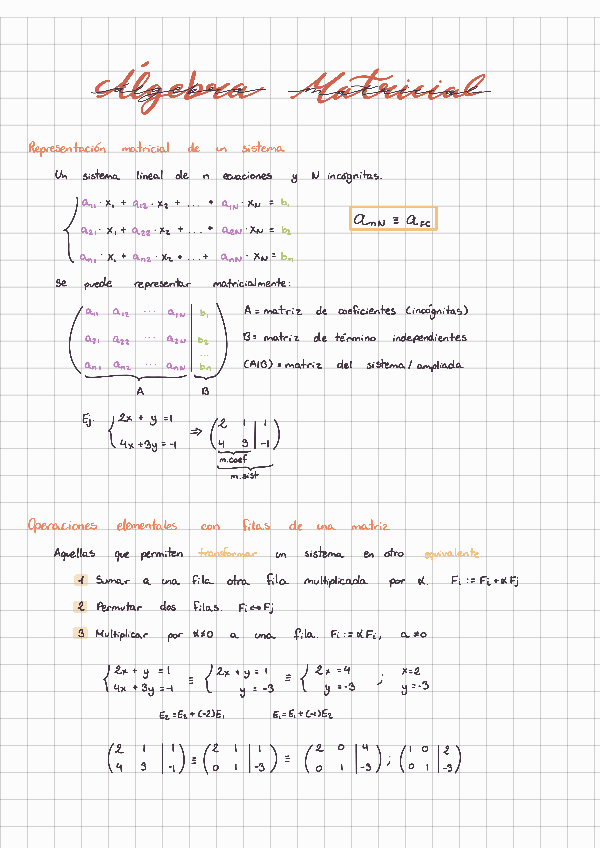 Álgebra Matricial
Representación matricial de un sistema
Un sistema lineal de n ecuaciones y N incógnitas.
a₁₁ · x₁ + a₁₂ · x₂ + ... + a₁N · xN = b₁
anN ≡ aFC
a₂₁ · x₁ + a₂₂ · x₂ + ... + a₂N · xN = b₂
an₁ · x₁ + an₂ · x₂ + ... + anN · xN = bn
Se puede representar matricialmente:
a₁₁ a₁₂ ... a₁N | b₁ A = matriz de coeficientes (incógnitas)
a₂₁ a₂₂ ... a₂N | b₂ B = matriz de término independientes
...
an₁ an₂ ... anN | bn (A|B) = matriz del sistema / ampliada
A B
Ej. { 2x + y = 1 ⇒ ( 2 1 | 1 )
4x + 3y = -1 ( 4 3 | -1 )
m.coef
m.sist
Operaciones elementales con filas de una matriz
Aquellas que permiten transformar un sistema en otro equivalente
1 Sumar a una fila otra fila multiplicada por α. Fi := Fi + αFj
2 Permutar dos filas. Fi ↔ Fj
3 Multiplicar por α≠0 a una fila. Fi := αFi, α≠0
{ 2x + y = 1 ≡ { 2x + y = 1 ≡ { 2x = 4 ; x = 2
4x + 3y = -1 y = -3 y = -3 y = -3
E₂ = E₂ + (-2)E₁ E₁ = E₁ + (-1)E₂
( 2 1 | 1 ) ≡ ( 2 1 | 1 ) ≡ ( 2 0 | 4 ) ; ( 1 0 | 2 )
( 4 3 | -1 ) ( 0 1 | -3 ) ( 0 1 | -3 ) ( 0 1 | -3 )